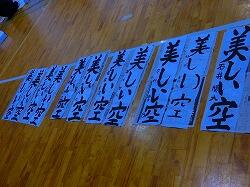 美しい空
美しい空
美しい空
美しい空
美しい空
美しい空
美しい空
美しい空
美しい空